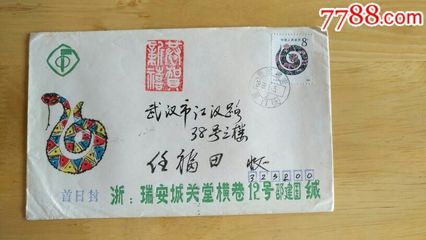 7788.com
恭贺
新禧
8
武汉市江汉路
38号三楼
任福田 收
325200
首日封
浙：瑞安城关堂横巷12号邵建国缄